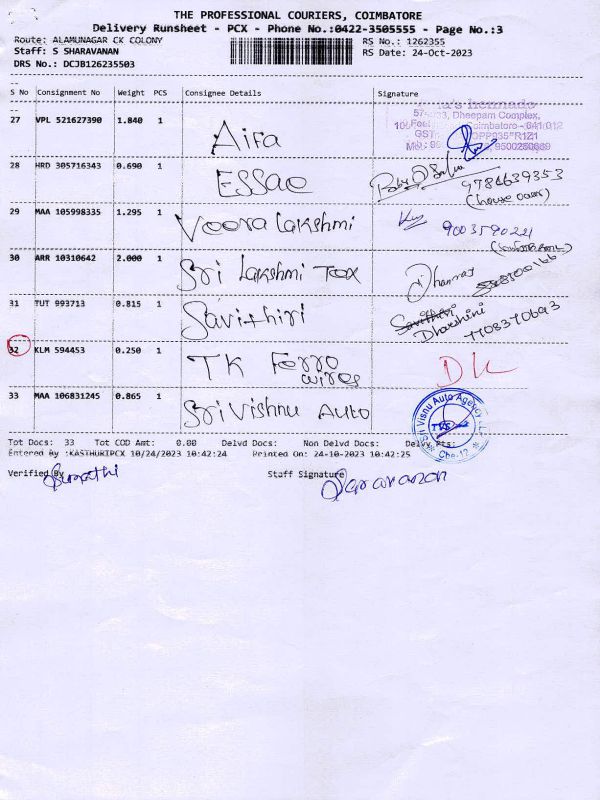 THE PROFESSIONAL COURIERS, COIMBATORE
Delivery Runsheet - PCX - Phone No.:0422-3505555 - Page No.:3
Route: ALAMUNAGAR CK COLONY RS No.: 1262355
Staff: S SHARAVANAN RS Date: 24-Oct-2023
DRS No.: DCJB126235503
S No Consignment No Weight PCS Consignee Details Signature
27 VPL 521627390 1.840 1 Aifa
Dheepam Complex,
Coimbatore - 641 012
28 HRD 305716343 0.690 1 ESSae
9784639353
29 MAA 105998335 1.295 1 Veera Lakshmi
30 ARR 10310642 2.000 1 Sri Lakshmi Tex
31 TUT 993713 0.815 1 Savithiri
Dharshini
7708370693
32 KLM 594453 0.250 1 TK Ferro wires DK
33 MAA 106831245 0.865 1 Sri Vishnu Auto
Sri Visnu Auto Agency
Cbe-12
Tot Docs: 33 Tot COD Amt: 0.00 Delvd Docs: Non Delvd Docs: Delvy Pts:
Entered By :KASTHURIPCX 10/24/2023 10:42:24 Printed On: 24-10-2023 10:42:25
Verified By Sumathi Staff Signature Saravanan